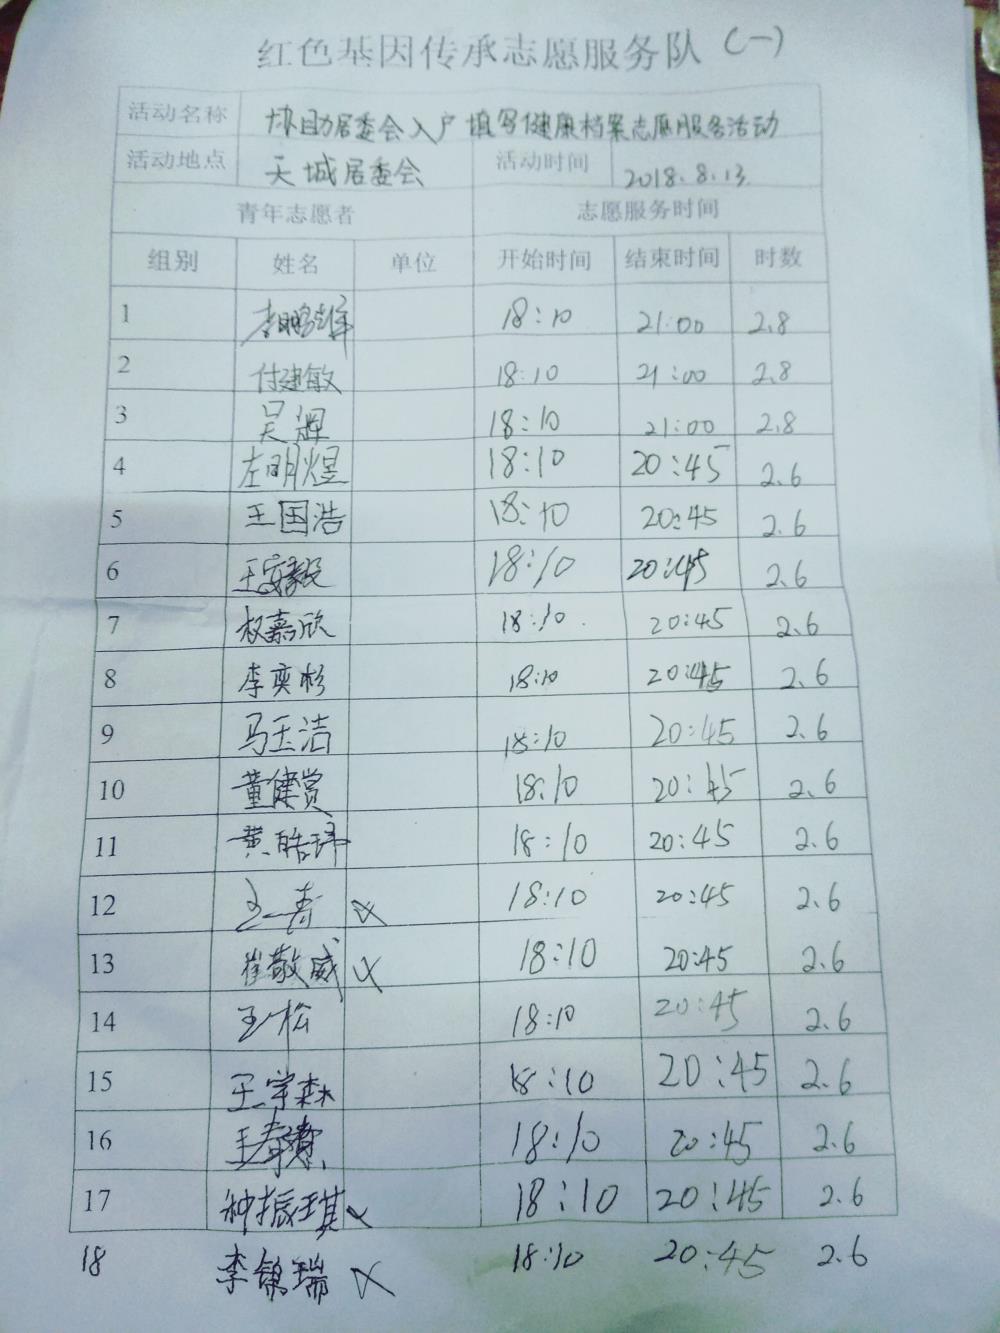 红色基因传承志愿服务队(一)
活动名称 协助居委会入户填写健康档案志愿服务活动
活动地点 天城居委会 活动时间 2018.8.13.
青年志愿者 志愿服务时间
组别 姓名 单位 开始时间 结束时间 时数
1 李鹏 18:10 21:00 2.8
2 付建敏 18:10 21:00 2.8
3 吴辉 18:10 21:00 2.8
4 左明煜 18:10 20:45 2.6
5 王国浩 18:10 20:45 2.6
6 王安毅 18:10 20:45 2.6
7 权嘉欣 18:10 20:45 2.6
8 李奕杉 18:10 20:45 2.6
9 马玉洁 18:10 20:45 2.6
10 董健赏 18:10 20:45 2.6
11 黄皓玮 18:10 20:45 2.6
12 18:10 20:45 2.6
13 崔敬威 18:10 20:45 2.6
14 王松 18:10 20:45 2.6
15 王宇森 18:10 20:45 2.6
16 18:10 20:45 2.6
17 种振琪 18:10 20:45 2.6
18 李锦瑞 18:10 20:45 2.6